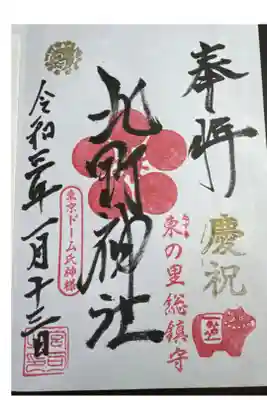 奉拝
慶祝
東の里総鎮守
北野神社
東京ドーム氏神様
令和三年一月十三日